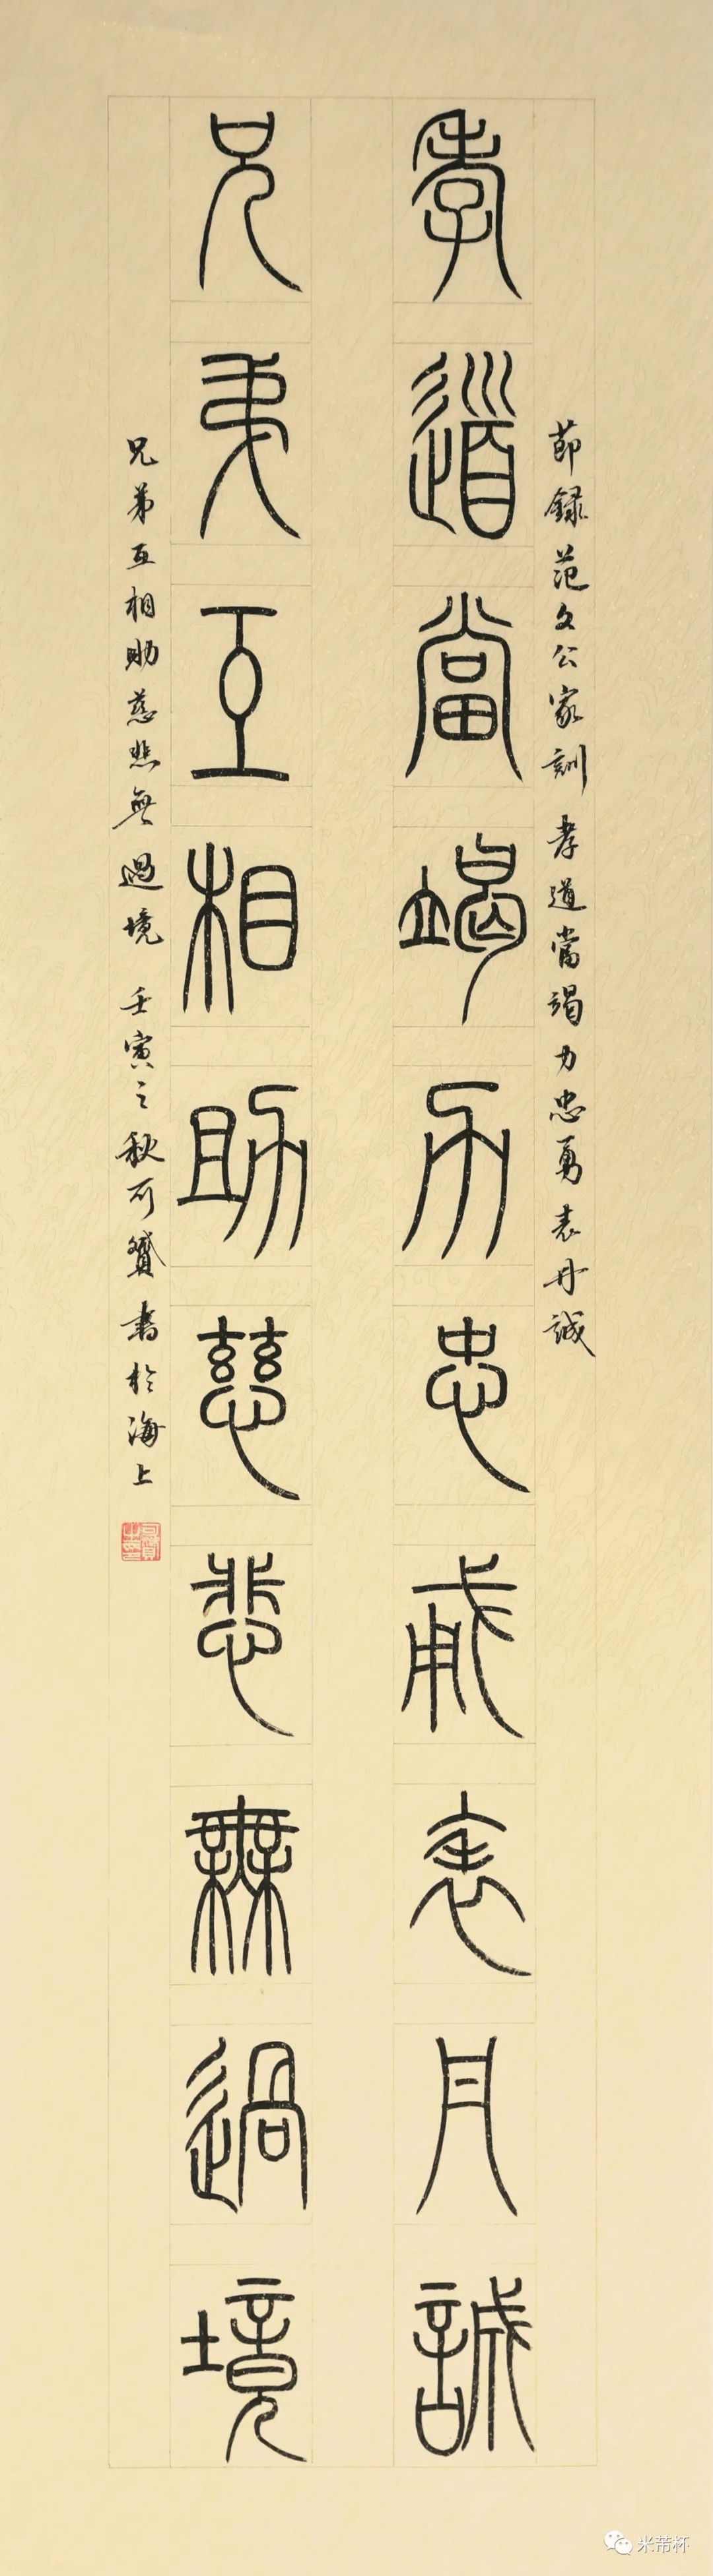 節録范文公家訓 孝道當竭力忠勇表丹誠
孝道當竭力忠勇表丹誠
兄弟互相助慈悲無過境
兄弟互相助慈悲無過境 壬寅之秋可贇書於海上
米芾杯